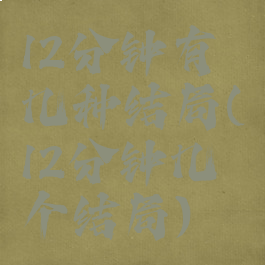 12分钟有
几种结局(
12分钟几
个结局)